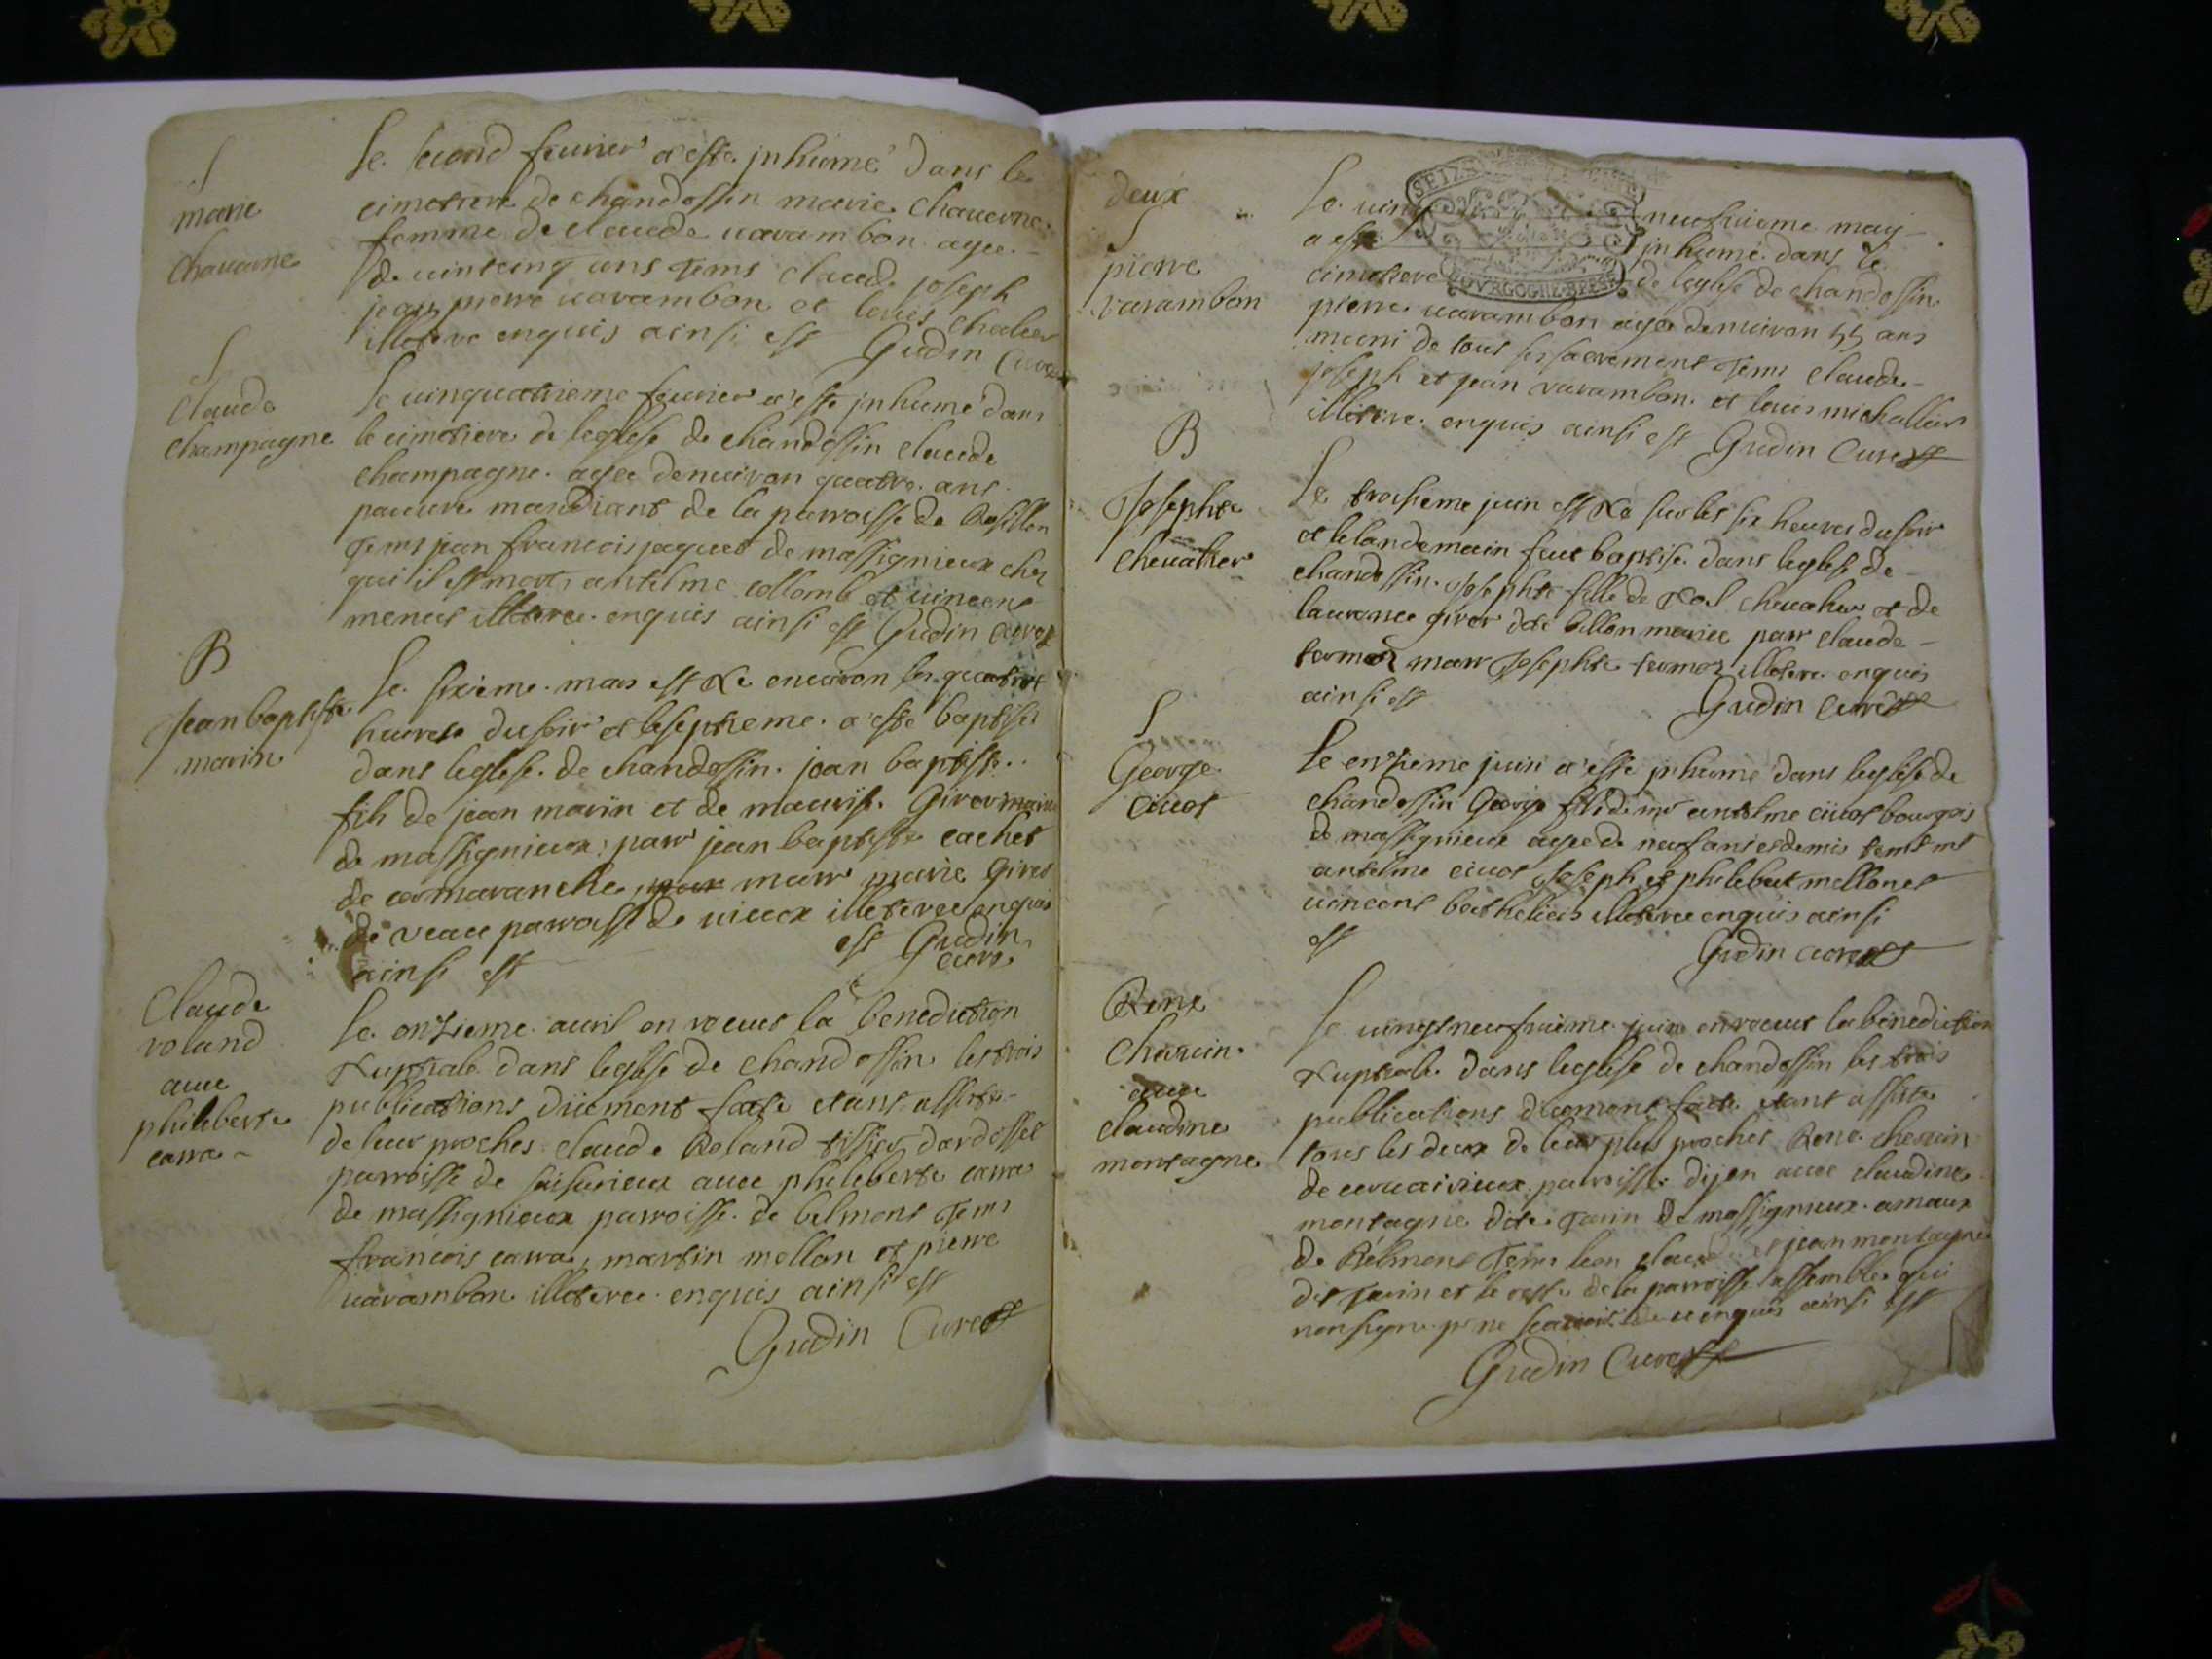 S
marie
chauarne
Le second feurier a esté jnhumé dans le
cimetiere de chandossin marie chauarne
femme de claude uarambon agee
de uintcinq ans tems claude joseph
jean pierre uarambon et louis
illetere enquis ainsi est Gudin Curé
S
claude
champagne
Le uinquatrieme feurier a esté jnhumé dans
le cimetiere de leglise de chandossin claude
champagne agee denuiron quatre ans
pauure mandiant de la parroisse de Rosillon
tems jean francois jaquet de massignieux chez
qui il est mort antelme collomb et uincent
menut illetere enquis ainsi est Gudin curé
B
Jean baptiste
marin
Le sixieme mars est Né enuiron les quatre
heures du soir et le septieme a esté baptisé
dans leglise de chandossin jean baptiste
fils de jean marin et de maurise Giros
de massignieux parr jean baptiste cachet
de cormaranche marr marie Giret
de ueau parroisse de uieux illeteree enquis
ainsi est est Gudin
Curé
Claude
roland
auec
philiberte
carra
Le onzieme auril on receut la benediction
Nuptiale dans leglise de chandossin les trois
publications dûement faite etant assisté
de leur proches claude Roland tissier dardosset
parroisse de suisurieux auec philiberte carra
de massignieux parroisse de belmont tems
francois carra, martin mellon et pierre
uarambon illeteree enquis ainsi est
Gudin Curé
deux
S
pierre
varambon
SEIZ
BOVRGOGNE BRESSE
Le uin neufuieme may
a esté jnhumé dans le
cimetiere de leglise de chandossin
pierre uarambon agé denuiron 55 ans
muni de tous ses sacrement tems claude
joseph et jean varambon et louis michallier
illetere enquis ainsi est Gudin Curé
B
Josephte
cheualier
Le troisieme juin est Né sur les six heures du soir
et le landemain feut baptisé dans leglise de
chandossin josephte fille de Noel cheualier et de
laurance giror dit billon mariee parr claude
termoz marr Josephte termoz illetere enquis
ainsi est Gudin Curé
S
George
ciuot
Le onzieme juin a esté jnhumé dans leglise de
chandossin George fils de mr antelme ciuot bourgois
de massignieux agee de neuf ans et demis tems mr
antelme ciuot Joseph et philibert mellonet
uincent bertheliers illeteree enquis ainsi
est Gudin curé
Rene
Charuin
auec
claudine
montagne
Le uingtneufuieme juin on receut la bénediction
Nuptiale dans leglise de chandossin les trois
publications duement faite etant assisté
tous les deux de leur plus proches Rene charuin
de ceruairieux parroisse dijon auec claudine
montagne dite tauin de massignieux amaux
de Bélmont tems leon claude et jean montagne
dit tauin et le reste de la parroisse assemblee qui
non signe p ne scauoir de ce enquis ainsi est
Gudin Curé